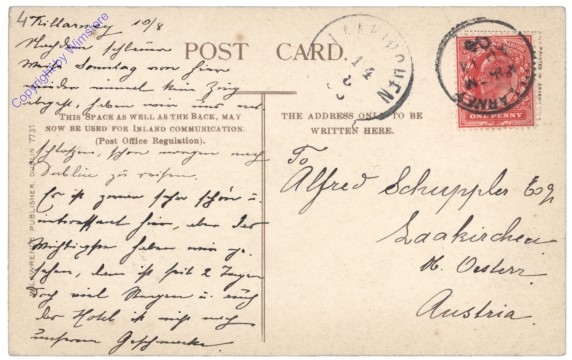 4 Killarney 10/8
Nachdem schlimmer
Weise Sonntag von hier
wieder einmal kein Zug
abgeht, haben wir uns
schlossen, schon morgen nach
Dublin zu reisen.
Es ist zwar sehr schön u.
interessant hier, aber das
Wichtigste haben wir ge-
sehen, dann ist seit 2 Tagen
doch viel Regen u. auch
das Hotel ist nicht nach
unserem Geschmacke.
Copyright by Wimstore
POST CARD.
THIS SPACE AS WELL AS THE BACK, MAY
NOW BE USED FOR INLAND COMMUNICATION.
(Post Office Regulation).
THE ADDRESS ONLY TO BE
WRITTEN HERE.
LAWRENCE, PUBLISHER, DUBLIN 7731
PRINTED IN SAXONY
KILLARNEY
ONE PENNY
To
Alfred Schuppler Esq
Laakirchen
Oesterr.
Austria.